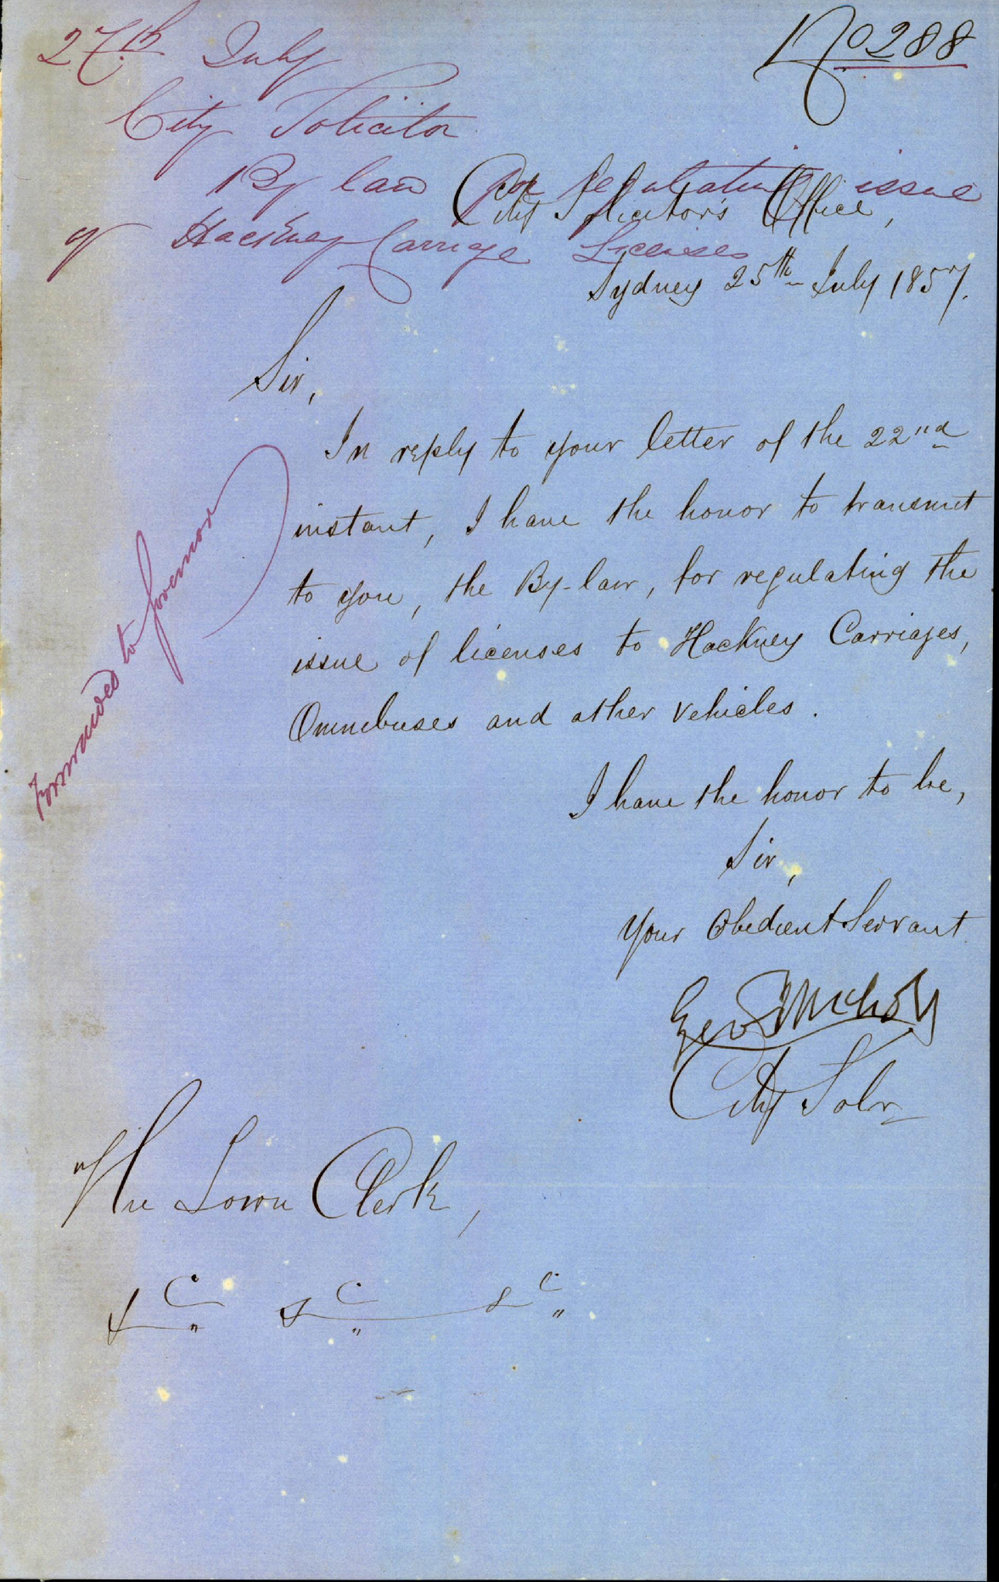 No 288
27th July
City Solicitor
By law for regulating issue
of Hackney Carriage Licenses
City Solicitor's Office,
Sydney 25th July 1857.
Sir,
In reply to your letter of the 22nd
instant, I have the honor to transmit
to you, the By-law, for regulating the
issue of licenses to Hackney Carriages,
Omnibuses and other vehicles.
Forwarded to Governor
I have the honor to be,
Sir,
Your Obedient Servant
Geo
City Solr
The Town Clerk,
&c &c &c